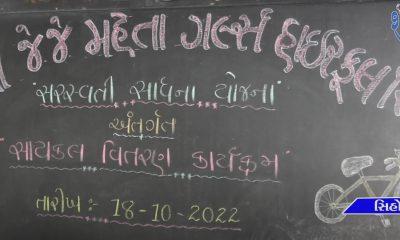 જે.જે. મહેતા ગર્લ્સ હાઈસ્કૂલ
સરસ્વતી સાધના યોજના
અંતર્ગત
સાયકલ વિતરણ કાર્યક્રમ
તારીખ :- 18-10-2022
સિહો